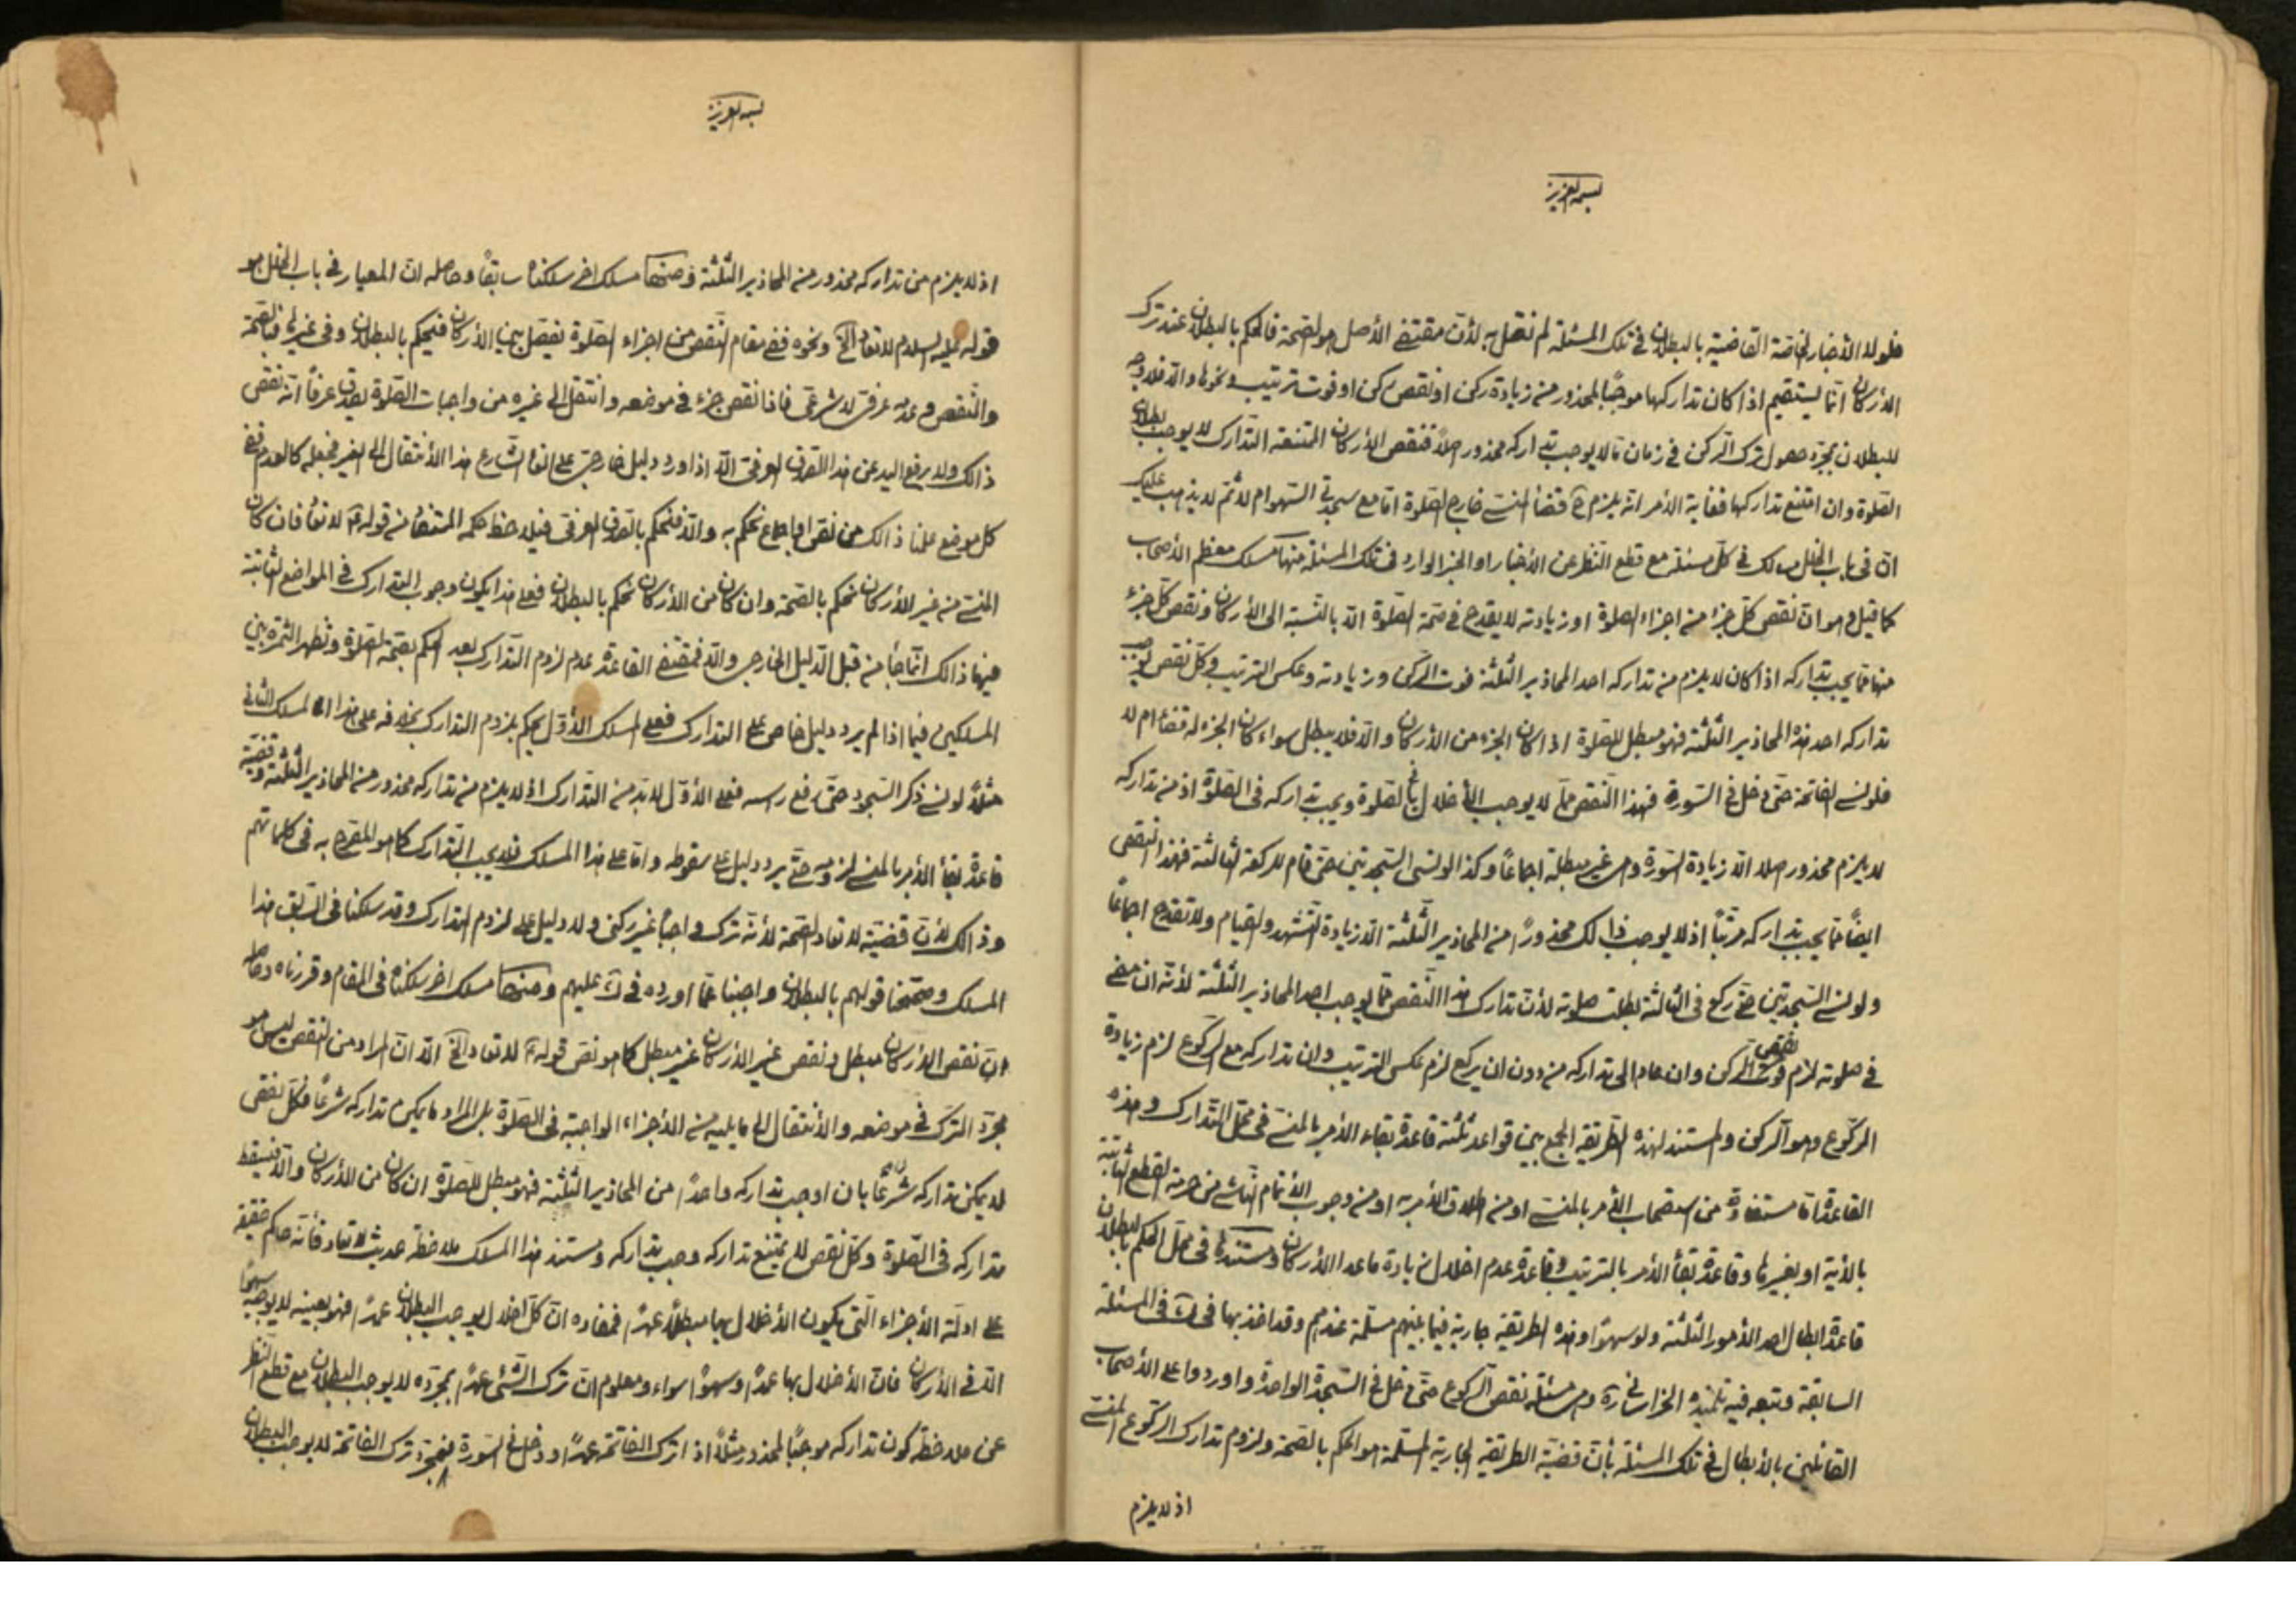 بسمه العزيز
فلولا الأخبار الخاصة القاضية بالبطلان في تلك المسئلة لم نقل به لأن مقتضى الأصل هو الصحة فالحكم بالبطلان عند ترك
الأركان انما يستقيم اذا كان تداركها موجبًا لمحذور من زيادة ركن او نقص ركن او فوت ترتيب ونحوها والا فلا وجه
للبطلان بمجرد حصول ترك الركن في زمان ما لا يوجب تداركه محذور اصلا فنقص الأركان الممتنعة التدارك لا يوجب بطلان
الصلوة وان امتنع تداركها فغاية الأمر انه يلزم ح قضاء المنسي خارج الصلوة اما مع سجدتي السهو ام لا ثم لا يذهب عليك
ان في باب الخلل مسالك في كل مسئلة مع قطع النظر عن الأخبار او الخبر الوارد في تلك المسئلة منها مسلك معظم الأصحاب
كما قيل وهو ان نقص كل جزء من اجزاء الصلوة او زيادته لا يقدح في صحة الصلوة الا بالنسبة الى الأركان ونقص كل جزء
منها مما يجب تداركه اذا كان لا يلزم من تداركه احد المحاذير الثلثة فوت الركن وزيادته وعكس الترتيب وكل نقص يوجب
تداركه احد هذه المحاذير الثلثة فهو مبطل للصلوة اذا كان الجزء من الأركان والا فلا يبطل سواء كان الجزء له قضاء ام لا
فلو نسي الفاتحة حتى دخل في السورة فهذا النقص مما لا يوجب الأخلال في الصلوة ويجب تداركه في الصلوة اذ من تداركه
لا يلزم محذور اصلا الا زيادة السورة وهي غير مبطلة اجماعًا وكذا لو نسي السجدتين حتى قام للركعة الثالثة فهذا النقص
ايضًا مما يجب تداركه مرتبًا اذ لا يوجب ذالك محذورًا من المحاذير الثلثة الا زيادة التشهد والقيام ولا تقدح اجماعًا
ولو نسي السجدتين حتى ركع في الثالثة بطلت صلوته لأن تدارك هذا النقص مما يوجب احد المحاذير الثلثة لأنه ان مضى
في صلوته لزم نقص الركن وان عاد الى تداركه من دون ان يركع لزم عكس الترتيب وان تداركه مع الركوع لزم زيادة
الركوع وهو الركن والمستند لهذه الطريقة الجمع بين قواعد ثلثة قاعدة بقاء الأمر بالمنسي في محل التدارك وهذه
القاعدة اما مستفادة من استصحاب الأمر بالمنسي او من اطلاق الأمر به او من وجوب الأتمام الناشي من حرمة القطع الثابتة
بالأية او بغيرها وقاعدة بقاء الأمر بالترتيب وقاعدة عدم اخلال زيادة ما عدا الأركان ومستندها في محل الحكم بالبطلان
قاعدة ابطال احد الأمور الثلثة ولو سهوًا وهذه الطريقة جارية فيما بينهم مسلمة عندهم وقد اخذ بها في ك في المسئلة
السابقة وتبعه فيه تلميذه الخراساني ره وهي مسئلة نقص الركوع حتى دخل في السجدة الواحدة واوردوا على الأصحاب
القائلين بالأبطال في تلك المسئلة بأن قضية الطريقة الجارية المسلمة هو الحكم بالصحة ولزوم تدارك الركوع المنسي
اذ لا يلزم
بسمه العزيز
اذ لا يلزم من تداركه محذور من المحاذير الثلثة ومنها مسلك اخر سلكناه سابقًا وحاصله ان المعيار في باب الخلل هو
قوله عليه السلام لا تعاد الخ ونحوه ففي مقام النقص من اجزاء الصلوة يفصل بين الأركان فيحكم بالبطلان وفي غيرها فبالصحة
والنقص وعدمه عرفي لا شرعي فاذا نقص جزء في موضعه وانتقل الى غيره من واجبات الصلوة يصدق عرفًا انه نقص
ذالك ولا يرفع اليد عن هذا الصدق العرفي الا اذا ورد دليل خارجي على الغاء الشارع هذا الأنتقال الى الغير فجعله كالعدم ففي
كل موضع علمنا ذالك من نص او اجماع نحكم به والا فنحكم بالصدق العرفي فيلاحظ حكمه المستفاد من قوله ع لا تعاد فان كان
المنسي من غير الأركان نحكم بالصحة وان كان من الأركان نحكم بالبطلان فعلى هذا يكون وجوب التدارك في المواضع الثابتة
فيها ذالك انما جاء من قبل الدليل الخارجي والا فمقتضى القاعدة عدم لزوم التدارك بعد الحكم بصحة الصلوة وتظهر الثمرة بين
المسلكين فيما اذا لم يرد دليل خاص على التدارك فعلى المسلك الأول يحكم بلزوم التدارك بخلافه على هذا المسلك الثاني
مثلاً لو نسي ذكر السجود حتى رفع راسه فعلى الأول لا بد من التدارك اذ لا يلزم من تداركه محذور من المحاذير الثلثة وقضية
قاعدة بقاء الأمر بالمنسي لزومه حتى يرد دليل على سقوطه واما على هذا المسلك فلا يجب التدارك كما هو المصرح به في كلماتهم
وذالك لأن قضية لا تعاد الصحة لأنه ترك واجبًا غير ركني ولا دليل على لزوم التدارك وقد سلكنا في السابق هذا
المسلك وصححنا قولهم بالبطلان واجبنا عما اورده في ك عليهم ومنها مسلك اخر سلكناه في المقام وقررناه وحاصله
ان نقص الأركان مبطل ونقص غير الأركان غير مبطل كما هو نص قوله ع لا تعاد الخ الا ان المراد من النقص ليس هو
مجرد الترك في موضعه والأنتقال الى ما يليه من الأجزاء الواجبة في الصلوة بل المراد ما يمكن تداركه شرعًا فكل نقص
لا يمكن تداركه شرعًا بان اوجب تداركه واحدًا من المحاذير الثلثة فهو مبطل للصلوة ان كان من الأركان والا فيسقط
تداركه في الصلوة وكل نقص لم يمتنع تداركه وجب تداركه ومستند هذا المسلك ملاحظة حديث لا تعاد فأنه حاكم حقيقة
على ادلة الأجزاء التي يكون الأخلال بها مبطلاً عمدًا فمفاده ان كل اخلال يوجب البطلان عمدًا فهو بعينه لا يوجبه سهوًا
الا في الأركان فان الأخلال بها عمدًا وسهوًا سواء ومعلوم ان ترك الشئ عمدًا بمجرده لا يوجب البطلان مع قطع النظر
عن ملاحظة كون تداركه موجبًا لمحذور مثلاً اذا ترك الفاتحة عمدًا ودخل في السورة فبمجرد ترك الفاتحة لا يوجب البطلان